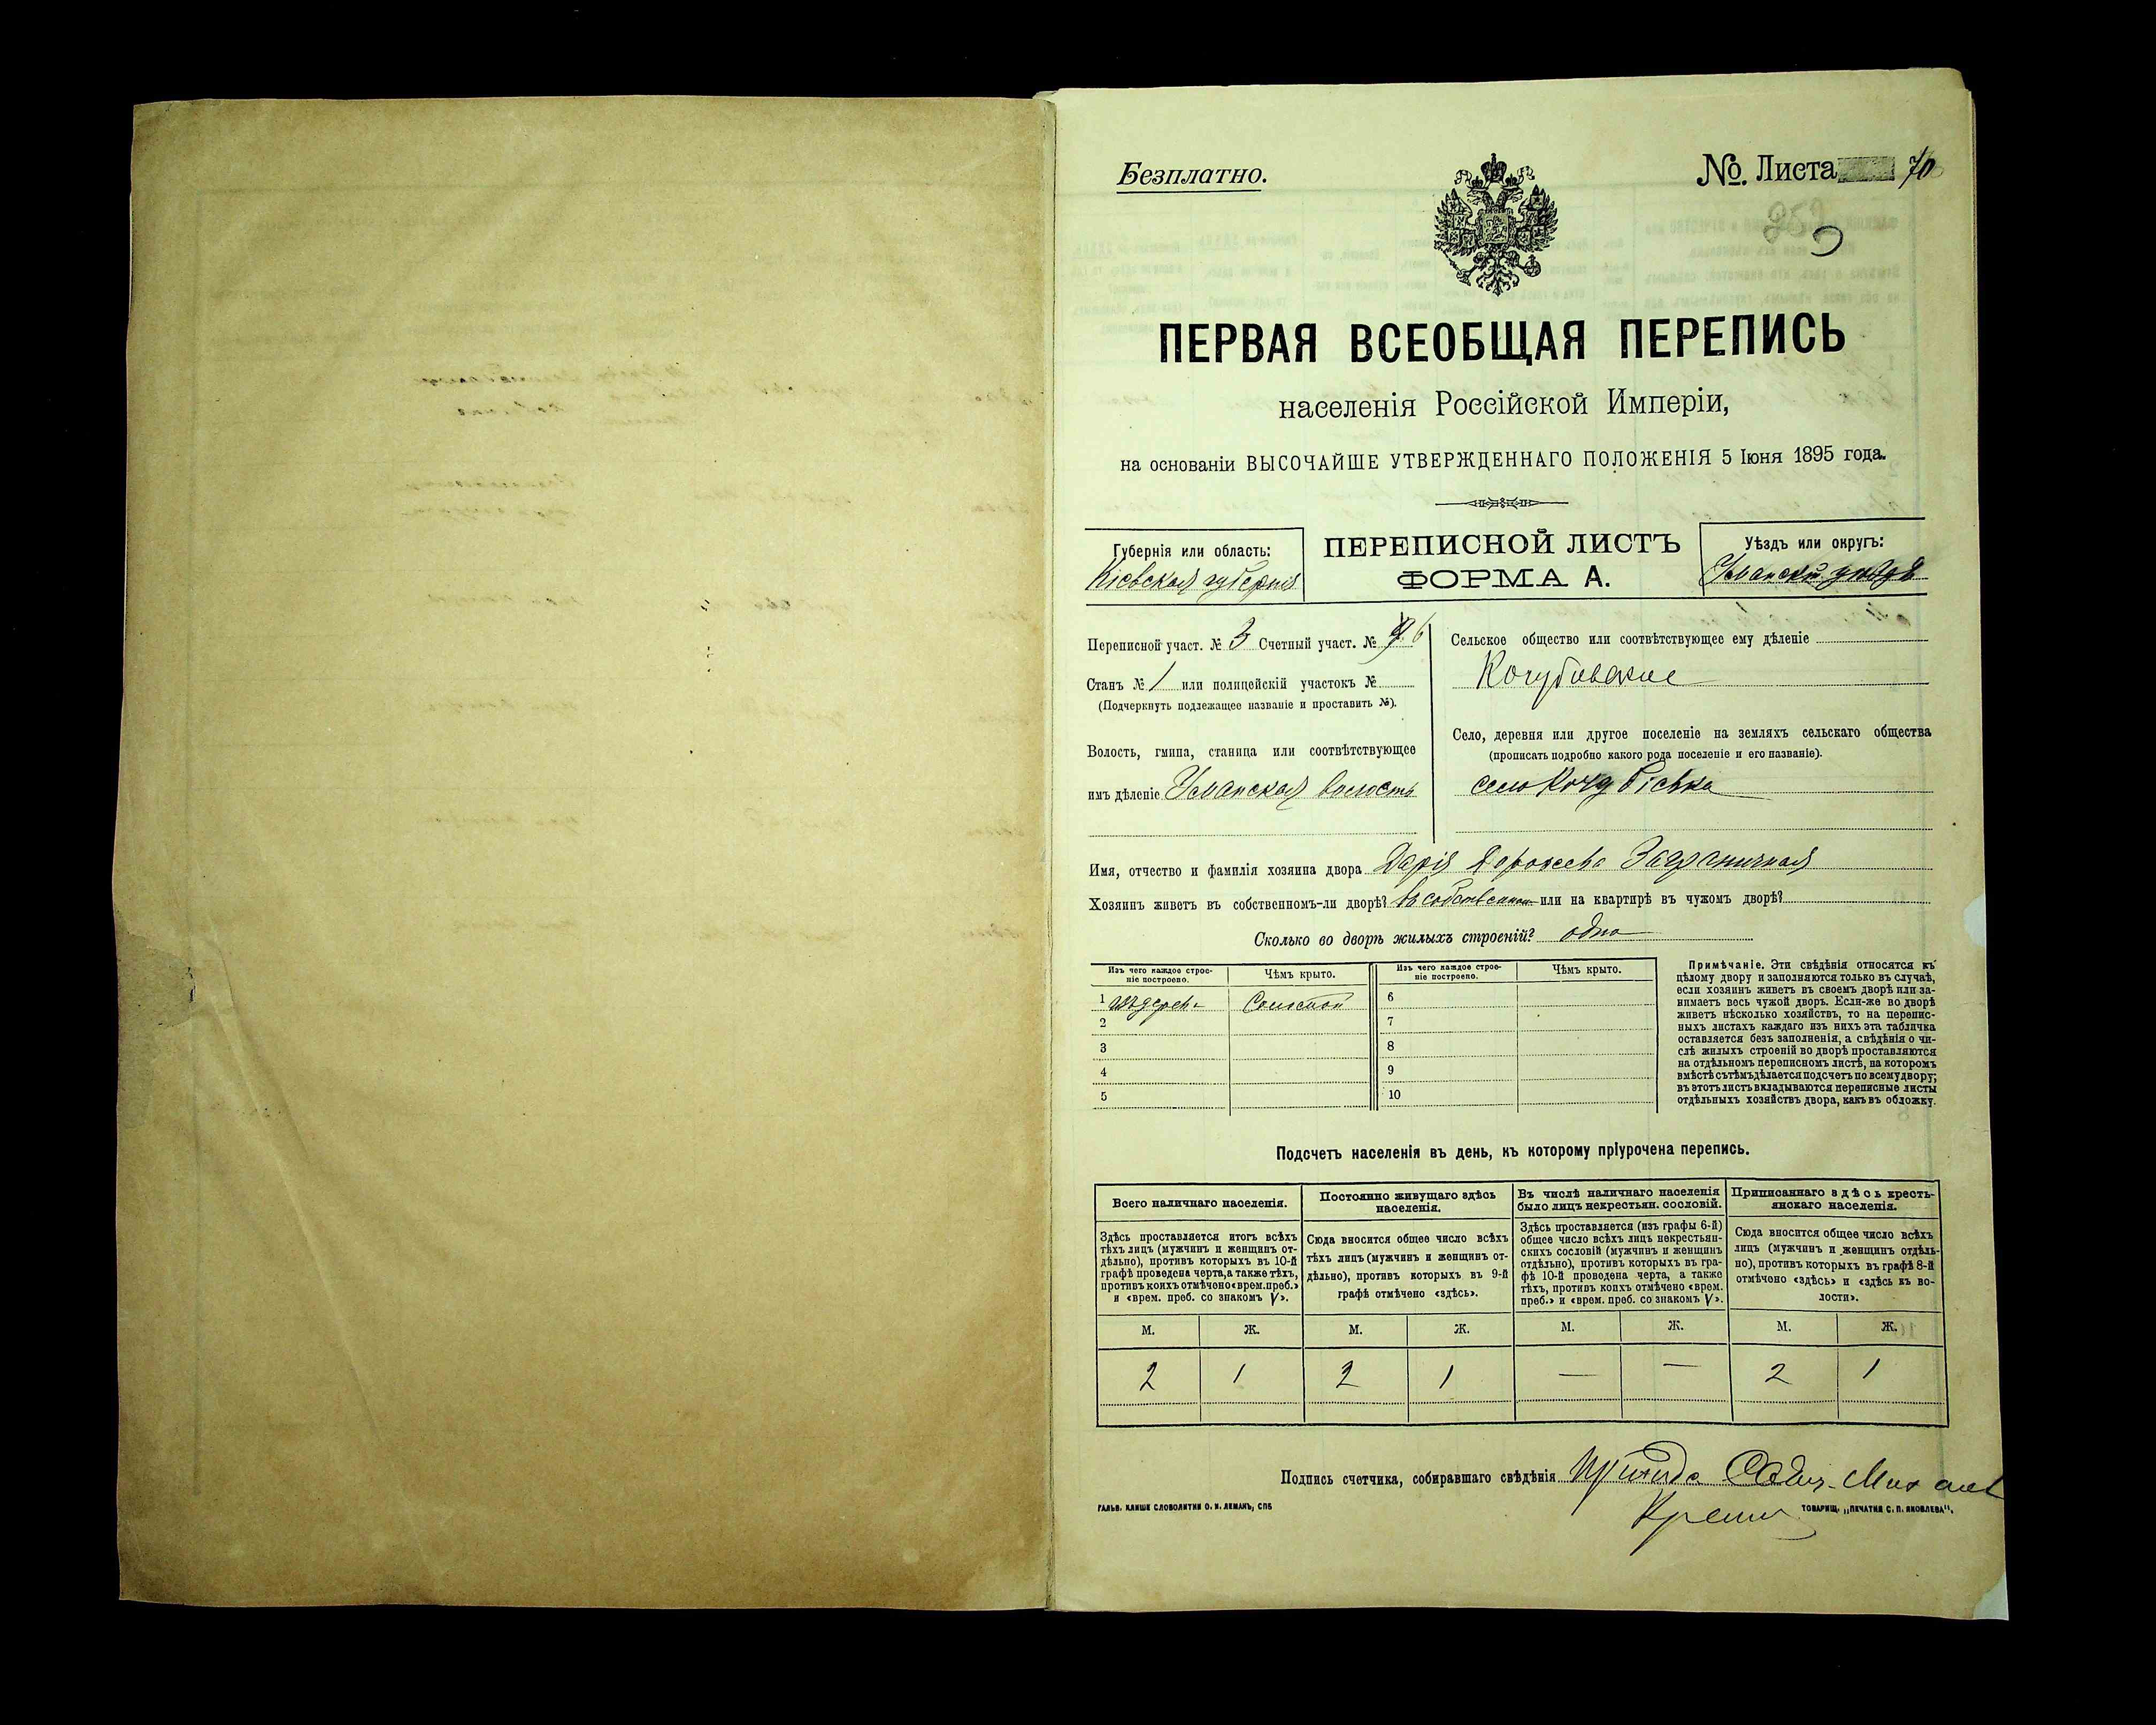 Безплатно.
№. Листа 70
ПЕРВАЯ ВСЕОБЩАЯ ПЕРЕПИСЬ
населенія Россійской Имперіи,
на основаніи ВЫСОЧАЙШЕ УТВЕРЖДЕННАГО ПОЛОЖЕНІЯ 5 Іюня 1895 года.
Губернія или область:
Кіевская губернія
ПЕРЕПИСНОЙ ЛИСТЪ
ФОРМА А.
Уѣздъ или округъ:
Уманскій уѣздъ
Переписной участ. № 3 Счетный участ. № 6
Станъ № 1 или полицейскій участокъ №
(Подчеркнуть подлежащее названіе и проставить №).
Волость, гмина, станица или соотвѣтствующее
имъ дѣленіе Уманская волость
Сельское общество или соотвѣтствующее ему дѣленіе
Кочубивское
Село, деревня или другое поселеніе на земляхъ сельскаго общества
(прописать подробно какого рода поселеніе и его названіе).
село Кочубіевка
Имя, отчество и фамилія хозяина двора Дарія Заграничная
Хозяинъ живетъ въ собственномъ-ли дворѣ? въ собственном или на квартирѣ въ чужомъ дворѣ?
Сколько во дворѣ жилыхъ строеній? одно
Изъ чего каждое строе-
ніе построено.
Чѣмъ крыто.
Изъ чего каждое строе-
ніе построено.
Чѣмъ крыто.
1 изъ дерев. Соломой
2
3
4
5
6
7
8
9
10
Примѣчаніе. Эти свѣдѣнія относятся къ
цѣлому двору и заполняются только въ случаѣ,
если хозяинъ живетъ въ своемъ дворѣ или за-
нимаетъ весь чужой дворъ. Если-же во дворѣ
живетъ нѣсколько хозяйствъ, то на перепис-
ныхъ листахъ каждаго изъ нихъ эта табличка
оставляется безъ заполненія, а свѣдѣнія о чи-
слѣ жилыхъ строеній во дворѣ проставляются
на отдѣльномъ переписномъ листѣ, на которомъ
вмѣстѣ съ тѣмъ дѣлается подсчетъ по всему двору;
въ этотъ листъ вкладываются переписные листы
отдѣльныхъ хозяйствъ двора, какъ въ обложку.
Подсчетъ населенія въ день, къ которому пріурочена перепись.
Всего наличнаго населенія.
Здѣсь проставляется итогъ всѣхъ
тѣхъ лицъ (мужчинъ и женщинъ от-
дѣльно), противъ которыхъ въ 10-й
графѣ проведена черта, а также тѣхъ,
противъ коихъ отмѣчено «врем. преб.»
и «врем. преб. со знакомъ V».
Постоянно живущаго здѣсь
населенія.
Сюда вносится общее число всѣхъ
тѣхъ лицъ (мужчинъ и женщинъ от-
дѣльно), противъ которыхъ въ 9-й
графѣ отмѣчено «здѣсь».
Въ числѣ наличнаго населенія
было лицъ некрестьян. сословій.
Здѣсь проставляется (изъ графы 6-й)
общее число всѣхъ лицъ некрестьян-
скихъ сословій (мужчинъ и женщинъ
отдѣльно), противъ которыхъ въ гра-
фѣ 10-й проведена черта, а также
тѣхъ, противъ коихъ отмѣчено «врем.
преб.» и «врем. преб. со знакомъ V».
Приписаннаго здѣсь кресть-
янскаго населенія.
Сюда вносится общее число всѣхъ
лицъ (мужчинъ и женщинъ отдѣль-
но), противъ которыхъ въ графѣ 8-й
отмѣчено «здѣсь» и «здѣсь къ во-
лости».
М. Ж. М. Ж. М. Ж. М. Ж.
2 1 2 1 — — 2 1
Подпись счетчика, собиравшаго свѣдѣнія
ГАЛЬВ. КЛИШЕ СЛОВОЛИТНИ О. И. ЛЕМАНЪ, СПБ
ТОВАРИЩ. „ПЕЧАТНЯ С. П. ЯКОВЛЕВА“.